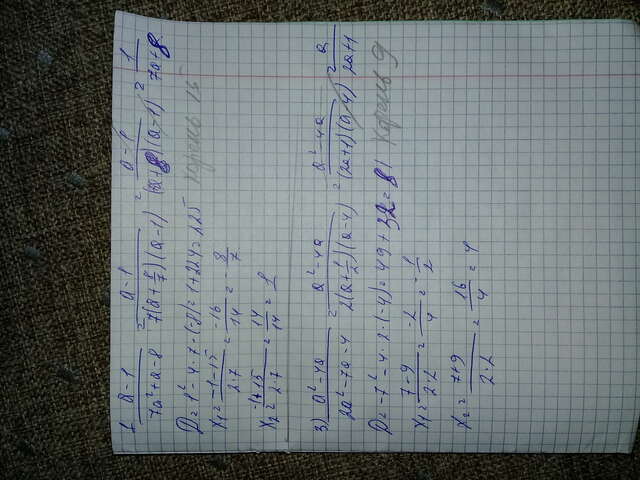 1 a-1/7a²+a-8 = a-1/7(a+8/7)(a-1) = a-1/(7a+8)(a-1) = 1/7a+8
D=1²-4·7·(-8)=1+224=225 Корень 15
x₁=-1-15/2·7=-16/14=-8/7
x₂=-1+15/2·7=14/14=1
3) a²-4a/2a²-7a-4 = a²-4a/2(a+1/2)(a-4) = a²-4a/(2a+1)(a-4) = a/2a+1
D=-7²-4·2·(-4)=49+32=81 Корень 9
x₁=7-9/2·2=-2/4=-1/2
x₂=7+9/2·2=16/4=4